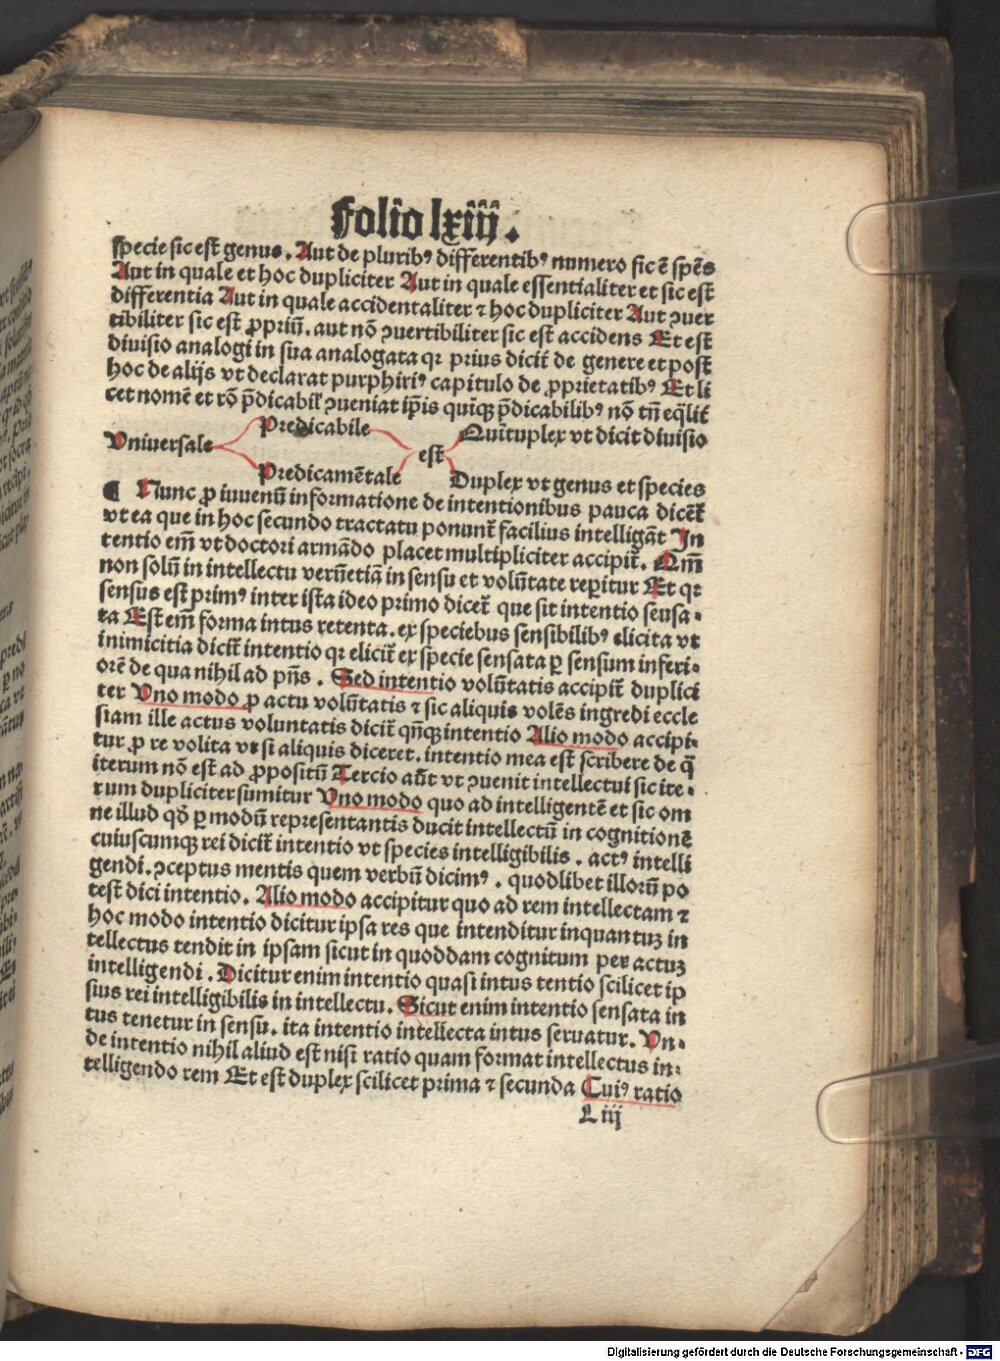 Folio lxiij.
specie sic est genus. Aut de plurib⁹ differentib⁹ numero sic ē spēs
Aut in quale et hoc dupliciter Aut in quale essentialiter et sic est
differentia Aut in quale accidentaliter ⁊ hoc dupliciter Aut ꝯuer
tibiliter sic est ꝓpriū. aut nō ꝯuertibiliter sic est accidens Et est
diuisio analogi in sua analogata qꝛ prius dicit̄ de genere et post
hoc de alijs vt declarat purphiri⁹ capitulo de ꝓprietatib⁹ Et li
cet nomē et rō p̄dicabil̄ ꝯueniat ip̄is quīqꝫ p̄dicabilib⁹ nō tn̄ eq̄lit̄
Predicabile Quītuplex vt dicit diuisio
Vniuersale est
Predicamētale Duplex vt genus et species
¶ Nunc ꝓ iuuenū informatione de intentionibus pauca dicēt̄
vt ea que in hoc secundo tractatu ponunt̄ facilius intelligāt In
tentio em̄ vt doctori armādo placet multipliciter accipit̄. Qm̄
non solū in intellectu verūetiā in sensu et volūtate reꝑitur Et qꝛ
sensus est prim⁹ inter ista ideo primo dicet̄ que sit intentio sensa-
ta Est em̄ forma intus retenta. ex speciebus sensibilib⁹ elicita vt
inimicitia dicit̄ intentio qꝛ elicit̄ ex specie sensata ꝑ sensum inferi-
orē de qua nihil ad pn̄s. Sed intentio volūtatis accipit̄ duplici
ter Vno modo ꝓ actu volūtatis ⁊ sic aliquis volēs ingredi eccle
siam ille actus voluntatis dicit̄ qn̄qꝫ intentio Alio modo accipi-
tur ꝓ re volita vt si aliquis diceret. intentio mea est scribere de q̄
iterum nō est ad ꝓpositū Tercio aūt vt ꝯuenit intellectui sic ite-
rum dupliciter sumitur Vno modo quo ad intelligentē et sic om
ne illud qd̄ ꝑ modū representantis ducit intellectū in cognitionē
cuiuscumqꝫ rei dicit̄ intentio vt species intelligibilis. act⁹ intelli
gendi. ꝯceptus mentis quem verbū dicim⁹. quodlibet illorū po
test dici intentio. Alio modo accipitur quo ad rem intellectam ⁊
hoc modo intentio dicitur ipsa res que intenditur inquantuꝫ in
tellectus tendit in ipsam sicut in quoddam cognitum per actuꝫ
intelligendi. Dicitur enim intentio quasi intus tentio scilicet ip
sius rei intelligibilis in intellectu. Sicut enim intentio sensata in
tus tenetur in sensu. ita intentio intellecta intus seruatur. Vn-
de intentio nihil aliud est nisi ratio quam format intellectus in-
telligendo rem Et est duplex scilicet prima ⁊ secunda Cui⁹ ratio
L iij
Digitalisierung gefördert durch die Deutsche Forschungsgemeinschaft - DFG